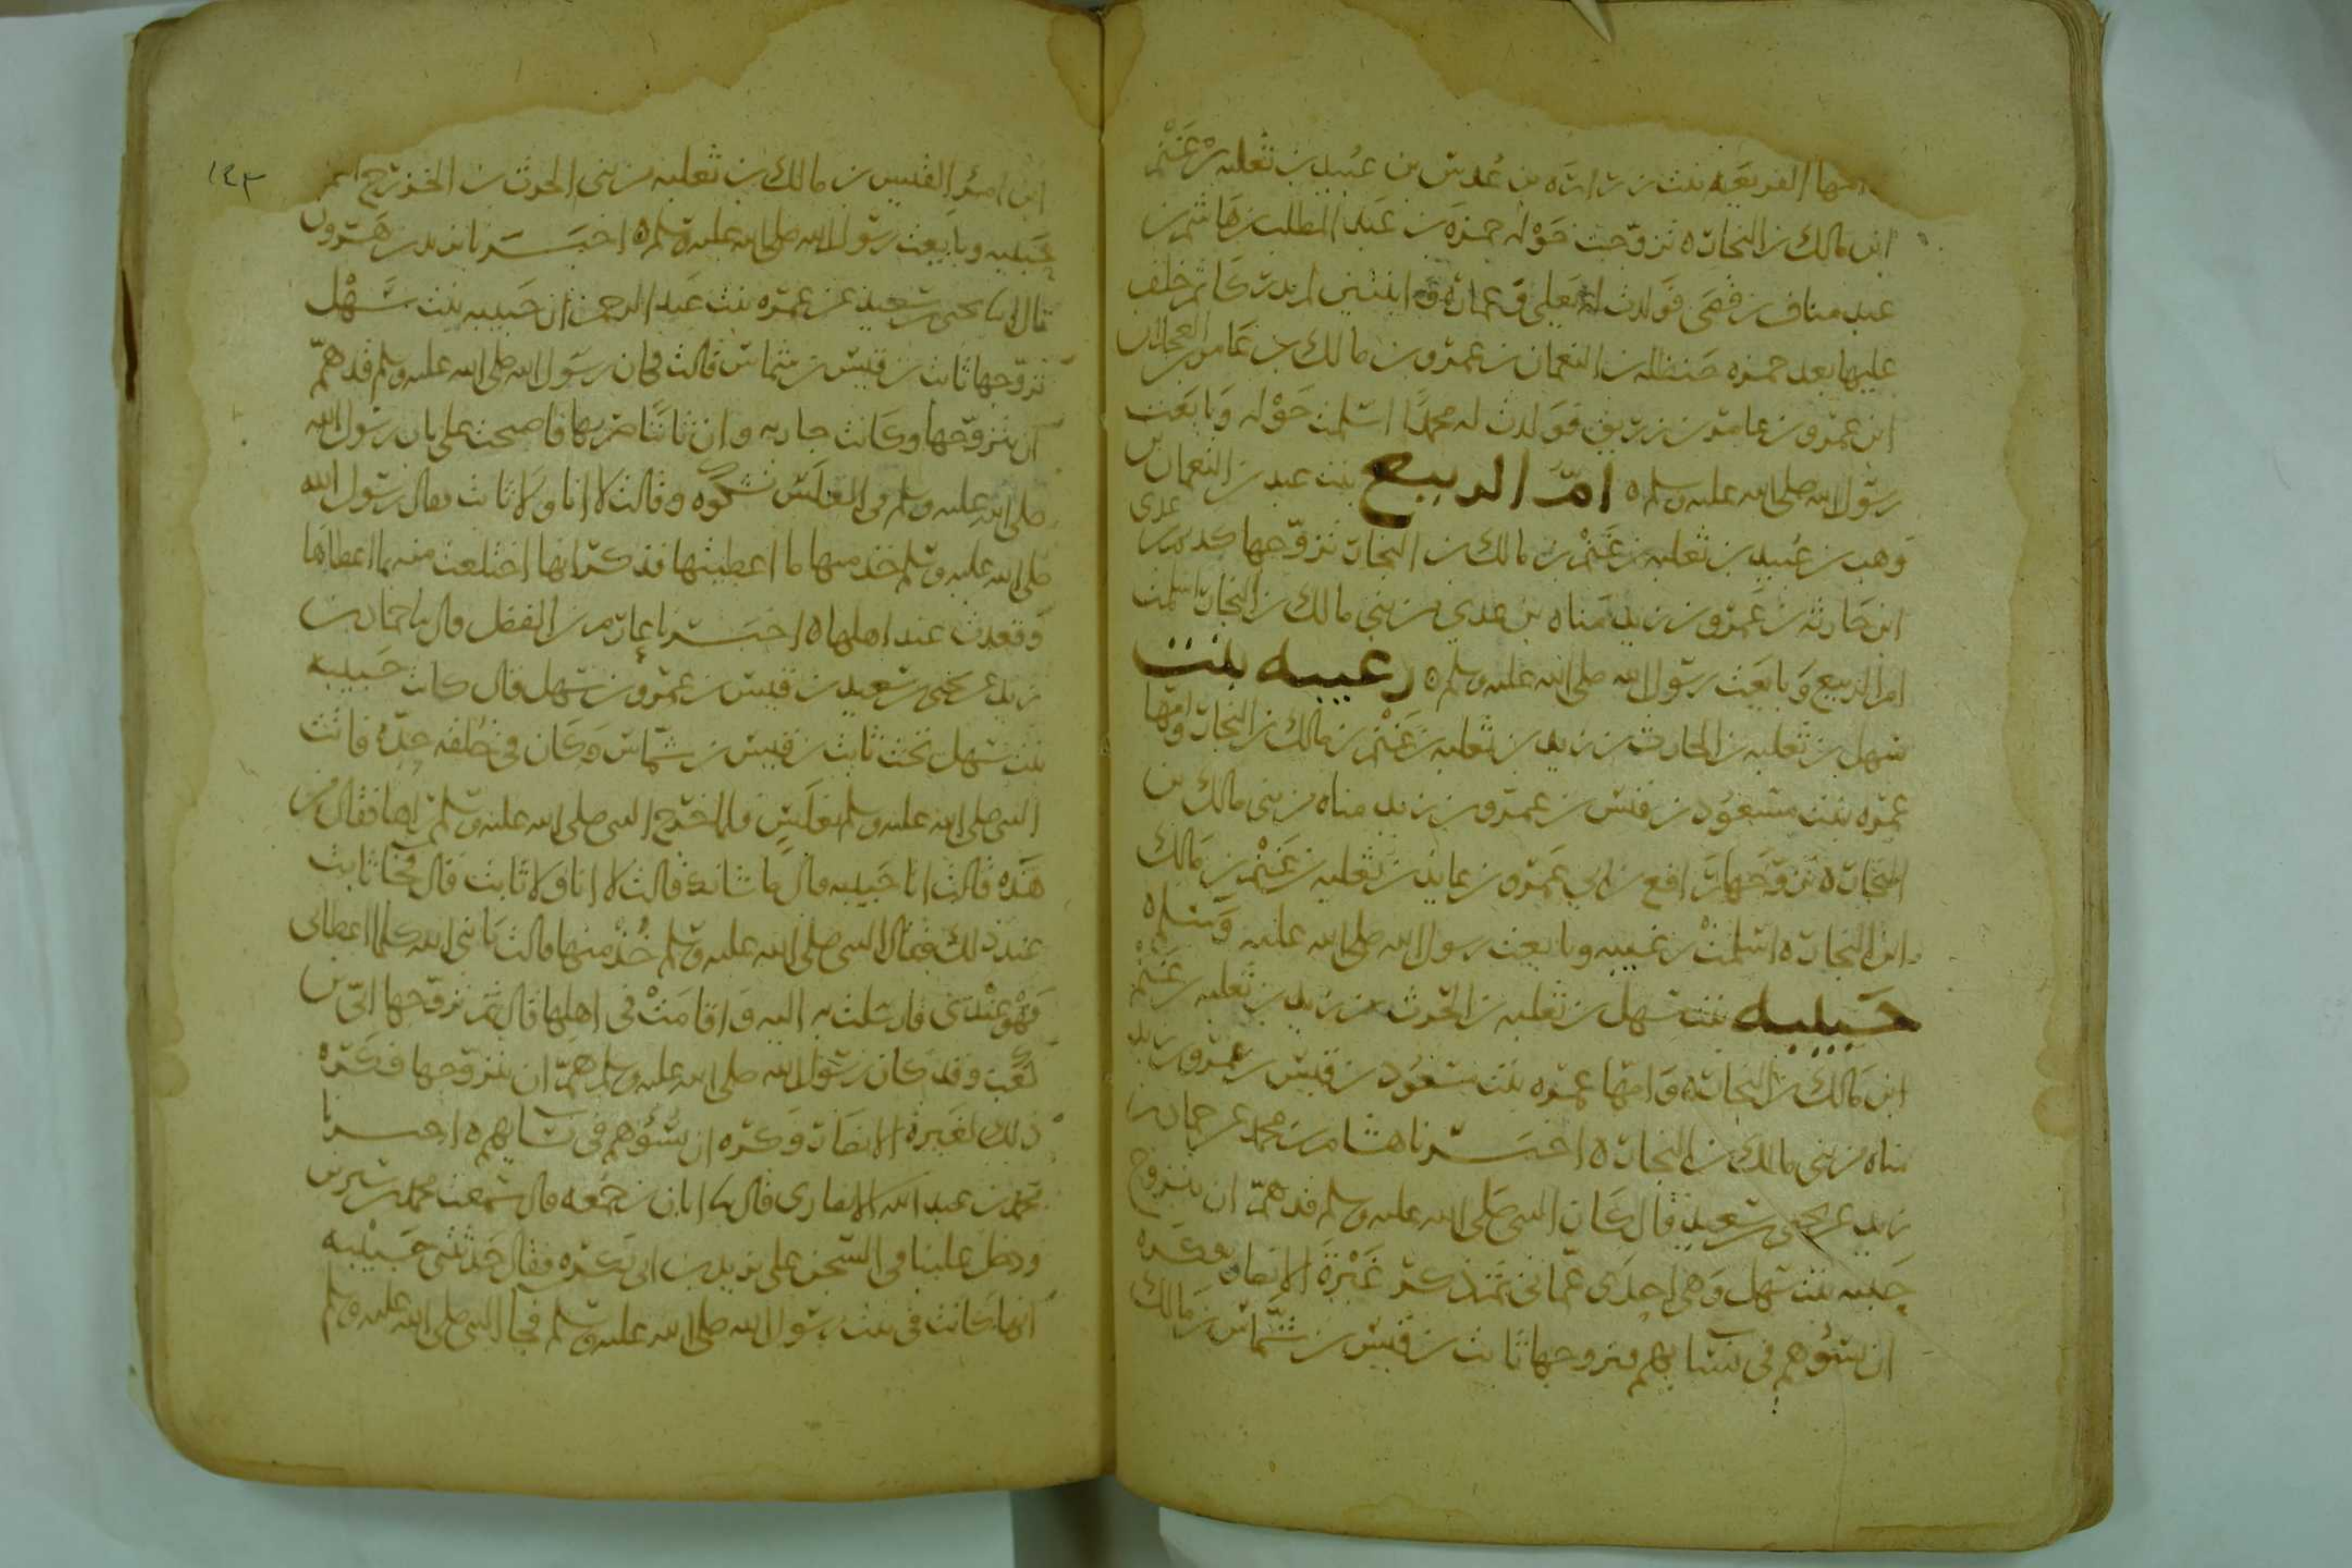 وامها الفريعه بنت زراره بن عدس بن عبيد بن ثعلبه بن غنم
ابن مالك بن النجار ه تزوجت خوله حمزه بن عبد المطلب بن هاشم بن
عبد مناف بن قصى فولدت له يعلى وعماره وابنتين لم يدركا ثم خلف
عليها بعد حمزه حنظله بن النعمان بن عمرو بن مالك بن عامر بن العجلان
ابن عمرو بن عامر بن زريق فولدت له محمدا اسلمت خوله وبايعت
رسول الله صلى الله عليه وسلم ه ام الربيع بنت عبد بن النعمان بن
وهب بن عبيد بن ثعلبه بن غنم بن مالك بن النجار تزوجها كديم بن عدى
ابن حارثه بن عمرو بن زيد مناه بن عدي من بني مالك بن النجار اسلمت
ام الربيع وبايعت رسول الله صلى الله عليه وسلم ه رغيبه بنت
سهل بن ثعلبه بن الحارث بن زيد بن ثعلبه بن غنم بن مالك بن النجار وامها
عمره بنت مسعود بن قيس بن عمرو بن زيد مناه من بنى مالك بن
النجار ه تزوجها رافع بن ابي عمرو بن عايذ بن ثعلبه بن غنم بن مالك
ابن النجار ه اسلمت رغيبه وبايعت رسول الله صلى الله عليه وسلم ه
حبيبه بنت سهل بن ثعلبه بن الحرث بن زيد بن ثعلبه بن غنم
ابن مالك بن النجار ه وامها عمره بنت مسعود بن قيس بن عمرو بن زيد
مناه من بنى مالك بن النجار ه اخبرنا هشام بن محمد عن حماد بن
زيد عن يحيى بن سعيد قال كان النبى صلى الله عليه وسلم قد هم ان يتزوج
حبيبه بنت سهل وهى احدى عماتى ثم ذكر غيرة الانصار فكره
ان يسؤهم فى نسايهم فتزوجها ثابت بن قيس بن شماس بن مالك
١٤٣
ابن امرئ القيس بن مالك بن ثعلبه من بنى الحرث بن الخزرج اسلمت
حبيبه وبايعت رسول الله صلى الله عليه وسلم ه اخبرنا يزيد بن هرون
قال انا يحيى بن سعيد عن عمره بنت عبد الرحمن ان حبيبه بنت سهل
تزوجها ثابت بن قيس بن شماس قالت فان رسول الله صلى الله عليه وسلم قد هم
ان يتزوجها وكانت جاريه وان ثابتا ضربها فاصبحت على باب رسول الله
صلى الله عليه وسلم فى الغلس تشكوه وقالت لا انا ولا ثابت فقال رسول الله
صلى الله عليه وسلم خذ منها ما اعطيتها فذكر انها اختلعت منه بما اعطاها
وقعدت عند اهلها ه اخبرنا عارم بن الفضل قال نا حماد بن
زيد عن يحيى بن سعيد بن قيس بن عمرو بن سهل قال كانت حبيبه
بنت سهل تحت ثابت بن قيس بن شماس وكان في خلقه حده فاتت
النبى صلى الله عليه وسلم بغلس فلما خرج النبى صلى الله عليه وسلم راها فقال من
هذه قالت انا حبيبه قال ما شانك قالت لا انا ولا ثابت قال فجا ثابت
عند ذلك فقال النبى صلى الله عليه وسلم خذ منها قالت يا نبى الله كلما اعطانى
فهو عندى فارسلت به اليه واقامت في اهلها قال ثم تزوجها ابى بن
كعب وقد كان رسول الله صلى الله عليه وسلم هم ان يتزوجها فكره
ذلك لغيرة الانصار وكره ان يسؤهم فى نسايهم ه اخبرنا
محمد بن عبد الله الانصارى قال نا ابان بن صمعه قال سمعت محمد بن سيرين
ودخل علينا فى السجن على يزيد بن ابى بكره فقال حدثتنى حبيبه
انها كانت فى بيت رسول الله صلى الله عليه وسلم فجا النبى صلى الله عليه وسلم